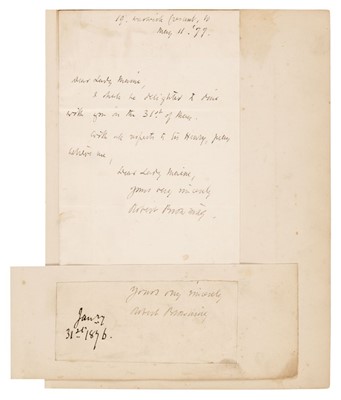 19, Warwick Crescent, W.
May 11. '77.
Dear Lady Maine,
I shall be delighted to dine
with you on the 31st of May.
With all respects to Sir Henry, pray
believe me,
Dear Lady Maine,
Yours very sincerely
Robert Browning.
Yours very sincerely
Robert Browning
Jany
31st 1876.